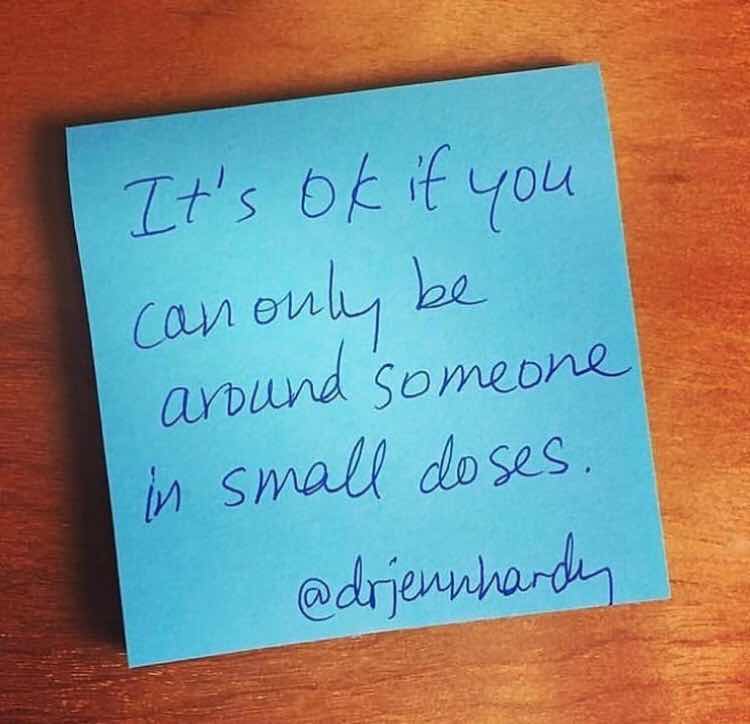 It's ok if you
can only be
around someone
in small doses.
@drjennhardy